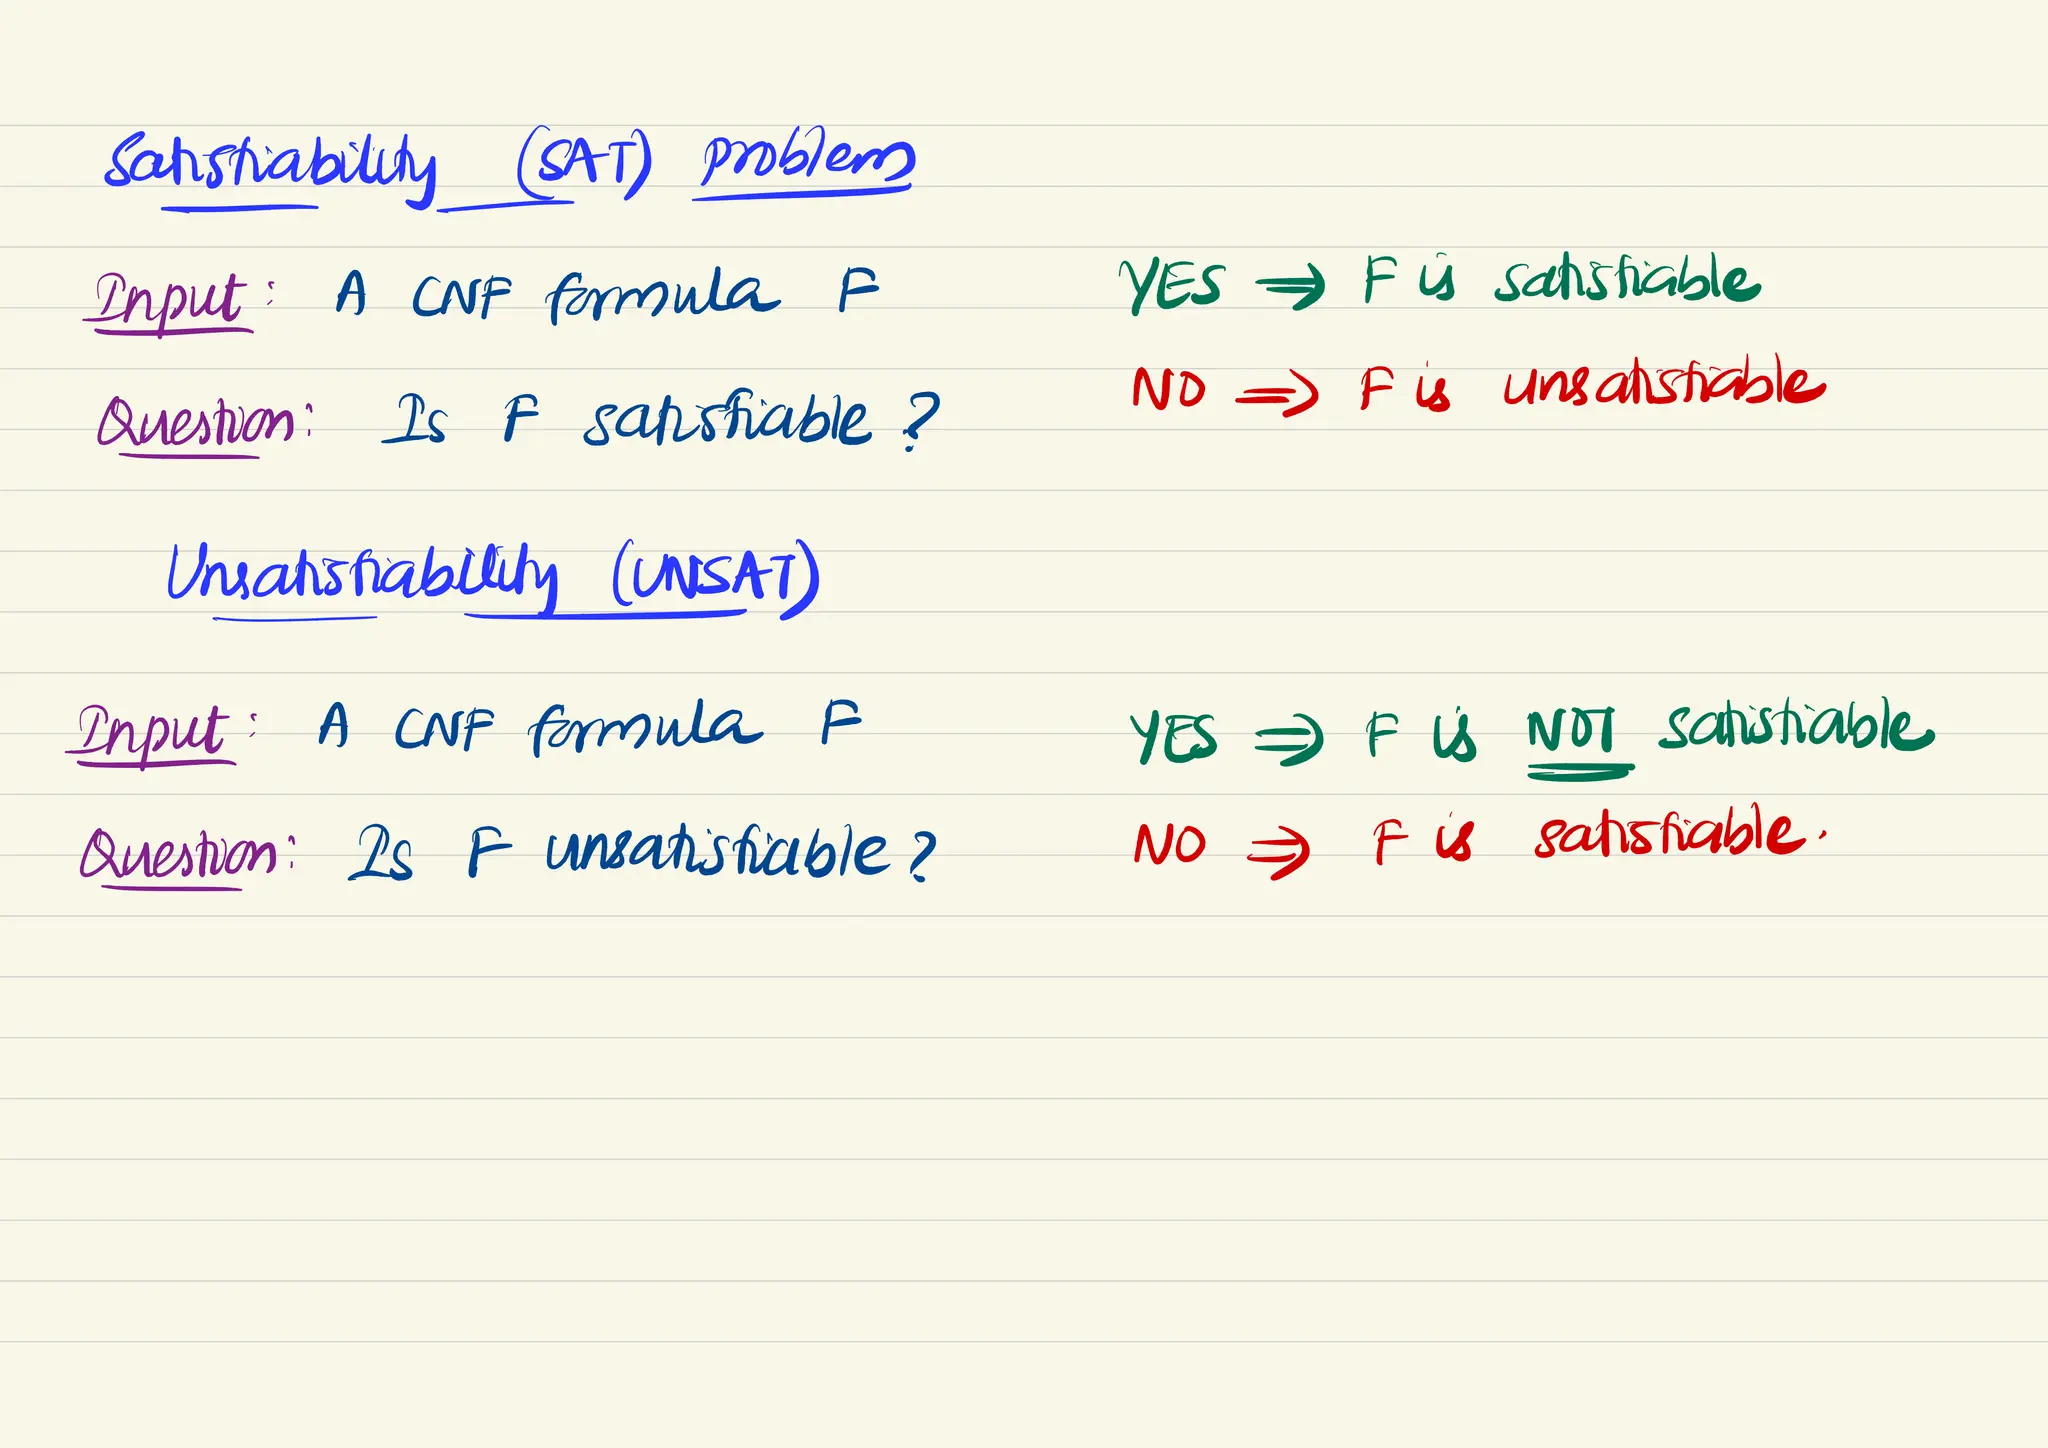 Satisfiability (SAT) problem
Input: A CNF formula F
YES ⇒ F is satisfiable
Question: Is F satisfiable?
NO ⇒ F is unsatisfiable
Unsatisfiability (UNSAT)
Input: A CNF formula F
YES ⇒ F is NOT satisfiable
Question: Is F unsatisfiable?
NO ⇒ F is satisfiable.